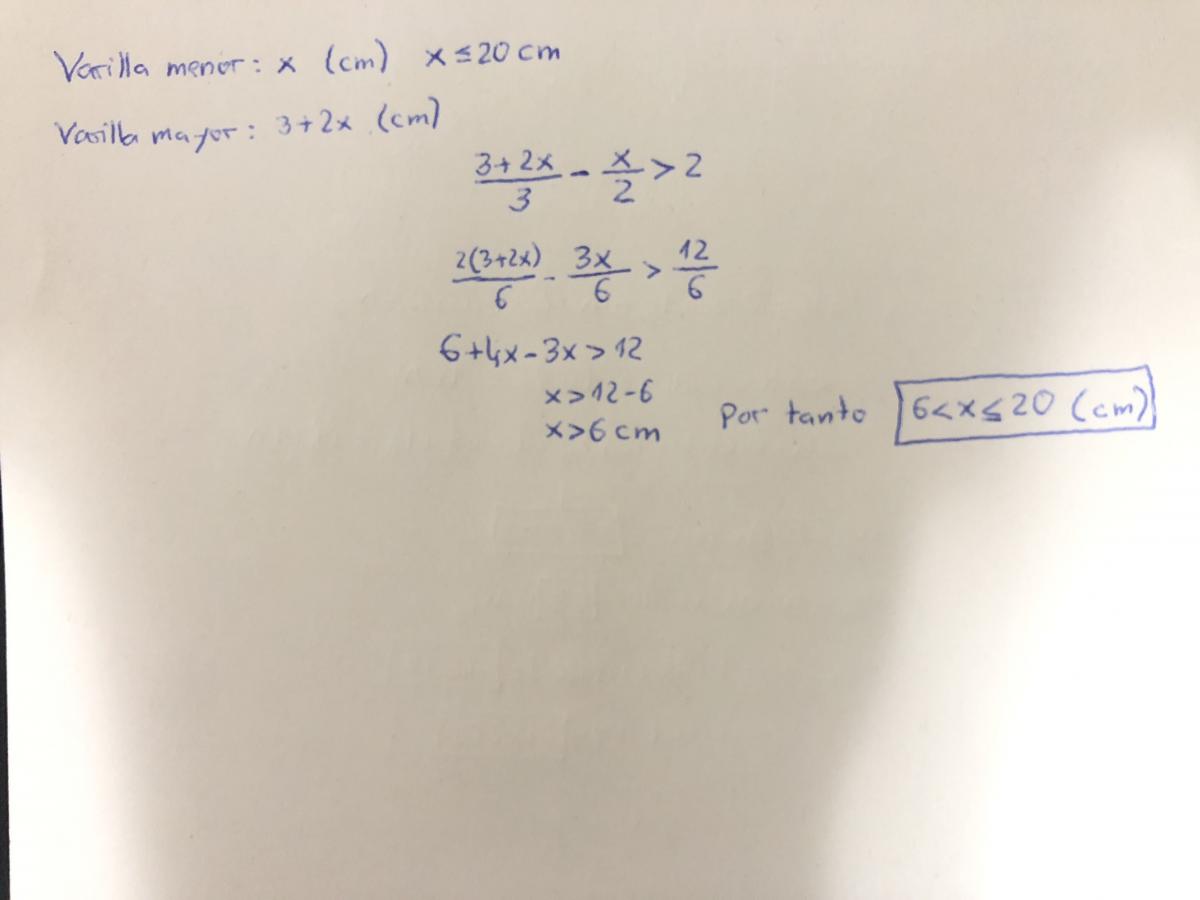 Varilla menor: x (cm) x ≤ 20 cm
Varilla mayor: 3+2x (cm)
(3+2x)/3 - x/2 > 2
2(3+2x)/6 - 3x/6 > 12/6
6+4x-3x > 12
x > 12-6
x > 6 cm
Por tanto 6 < x ≤ 20 (cm)